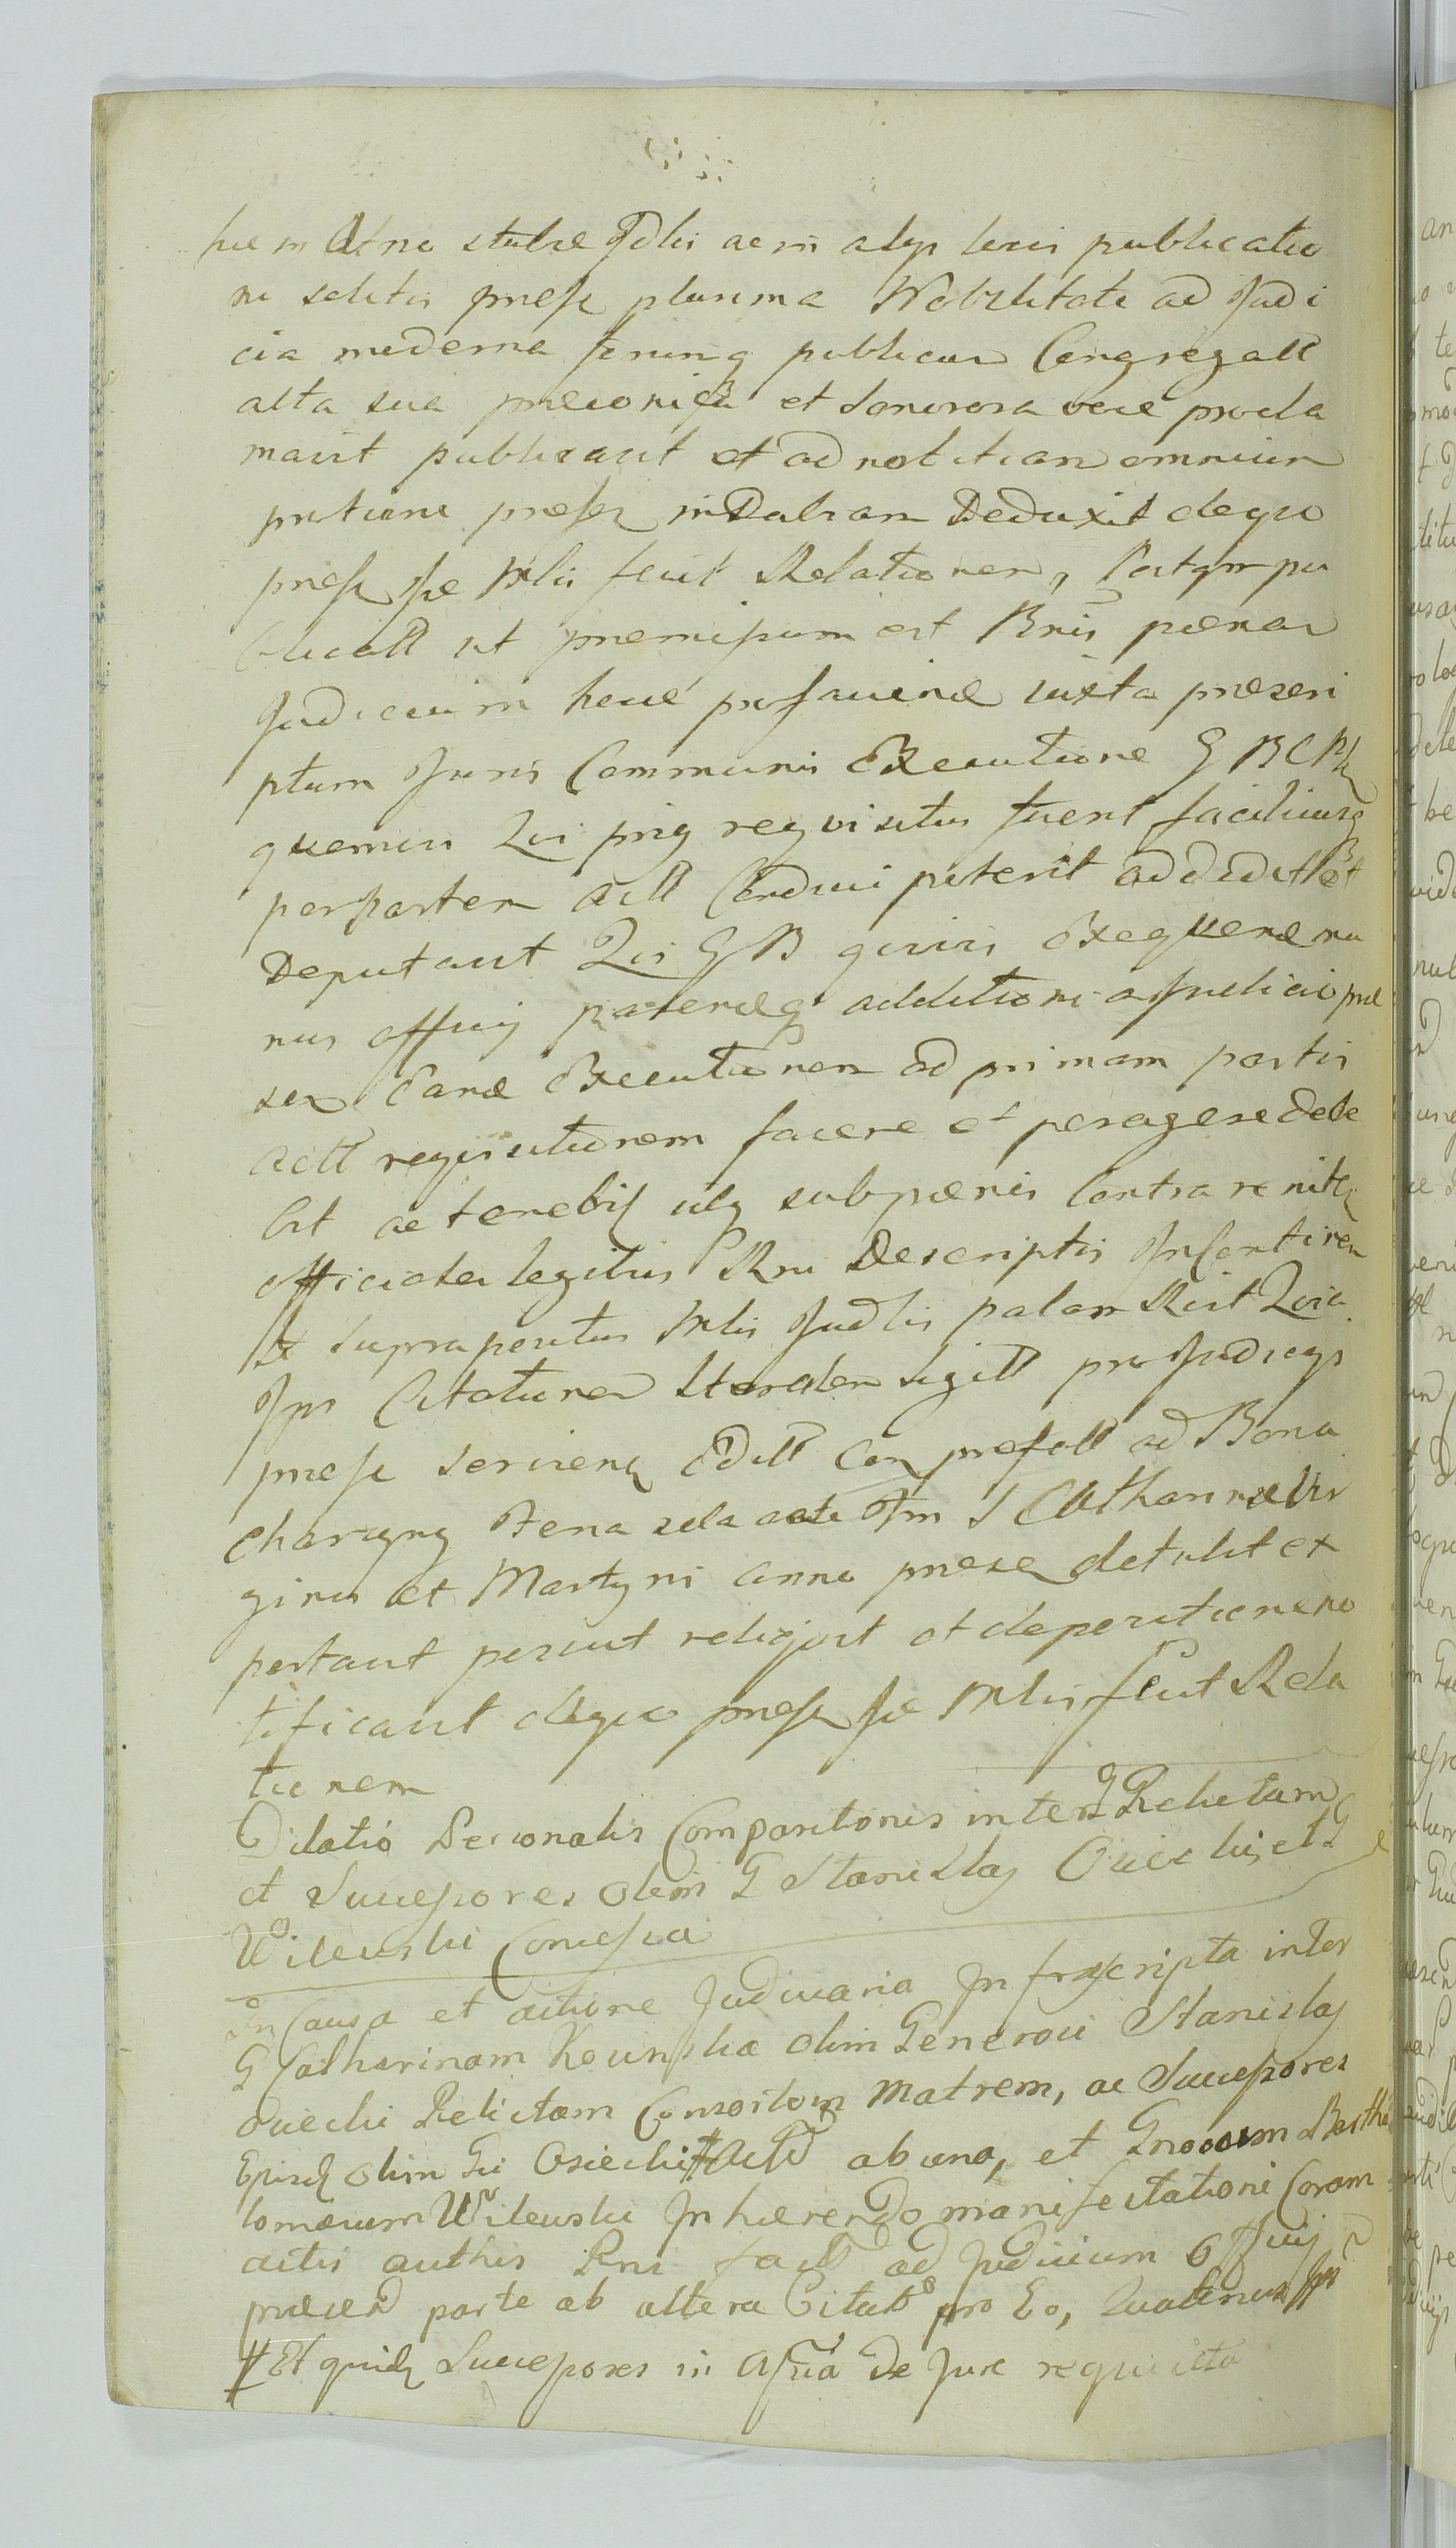 hic in Atrio stubæ Jdlis ac in alijs locis publicatio
ni solitis præse plurima Nobilitate ad Judi
cia moderna feninq publicum Congregatt
alta sua præconica et sonorosa voce procla
mavit publicavit et ad notitiam omnium
præsen deduxit dequo
præse se Mlis fecit Relationem, Postqm pu
blicatt ut præmissum est Bnis pænam
Judicium hocce pro favenæ iuxta præscri
ptum Juris Communis Executione G B C Ph
quemvis Qui prig requisitus fuerit faciliusq
per partem Actt Conduci poterit addidit et
Deputavit Qui G B quivis Exequenæ mu
nus officij additioni a Judicio præ
sen Executionem ad primam partis
Actt requisitionem facere et peragere debe
bit ac tenebit subpænis Contra reniten
officiales legibus Rni Descriptis
Supra positus Mlis Judlis palam Rcit Quia
Ips Citationem literalem sigill pro Judicijs
præse servienq Con præfatt ad Bona
ante fm S Catharinæ Vir
ginis et Martyris Anno præse detulit et
portavit posuit reliquit et depositionem no
tificavit dequo præse se Mlis fecit Rela
tionem
Dilatio Personalis Comparitionis inter G Relictam
et Successores olim G Stanislaj Osiecki, et G
Wilewski Concessa
In Causa et actione Judiciaria Infrascripta inter
G Catharinam Kocinska olim Generosi Stanislaj
Osiecki Relictam Consortem Matrem, ac Successores
Ejusd olim Gsi Osiecki ‡ Actt ab una, et Gnosum Bartho
lomæum Wilewski Inhærendo manifestationi Coram
actis authis Rni fact ad Judicium Officij
præsen parte ab altera Citatt pro Eo, Quatenus Ips
‡ Et quidq Successores in Assña de Jure requisita